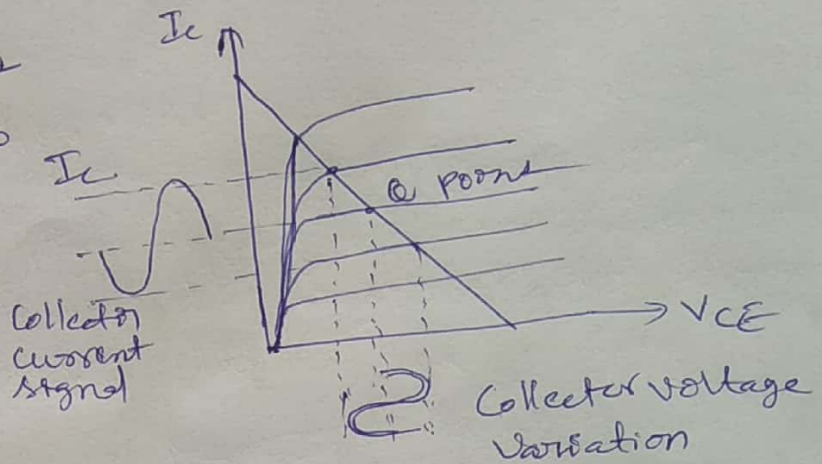 Ic
Ic
Q point
Collector
current
signal
VCE
Collector voltage
variation